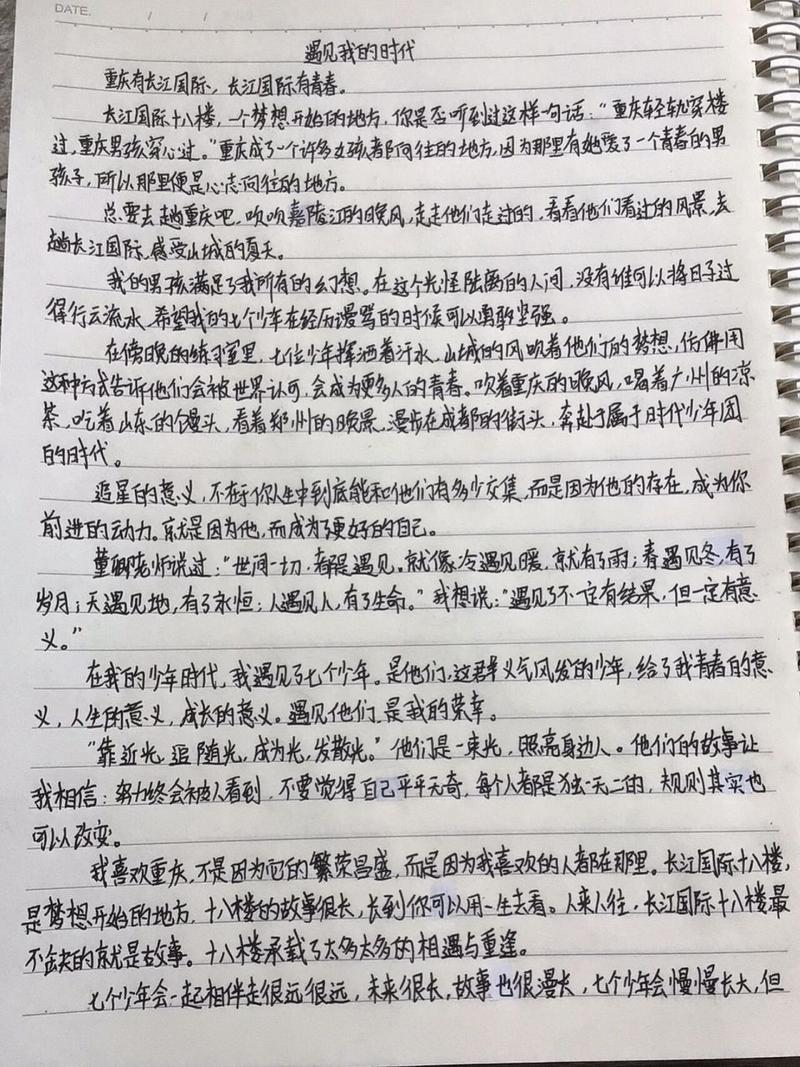 DATE. / /
遇见我的时代
重庆有长江国际，长江国际有青春。
长江国际十八楼，一个梦想开始的地方，你是否听到过这样一句话：“重庆轻轨穿楼
过，重庆男孩穿心过。”重庆成了一个许多女孩都向往的地方，因为那里有她爱了一个青春的男
孩子，所以那里便是心志向往的地方。
总要去趟重庆吧，吹吹嘉陵江的晚风，走走他们走过的，看看他们看过的风景，去
趟长江国际，感受山城的夏天。
我的男孩满足了我所有的幻想。在这个光怪陆离的人间，没有谁可以将日子过
得行云流水，希望我的七个少年在经历谩骂的时候可以勇敢坚强。
在傍晚的练习室里，七位少年挥洒着汗水，山城的风吹着他们的梦想，仿佛用
这种方式告诉他们会被世界认可，会成为更多人的青春。吹着重庆的晚风，喝着广州的凉
茶，吃着山东的馒头，看着郑州的晚景，漫步在成都的街头，奔赴于属于时代少年团
的时代。
追星的意义，不在于你人生中到底能和他们有多少交集，而是因为他的存在，成为你
前进的动力。就是因为他，而成为了更好的自己。
董卿老师说过：“世间一切，都是遇见。就像，冷遇见暖，就有了雨；春遇见冬，有了
岁月；天遇见地，有了永恒；人遇见人，有了生命。”我想说：“遇见了不一定有结果，但一定有意
义。”
在我的少年时代，我遇见了七个少年。是他们，这群义气风发的少年，给了我青春的意
义，人生的意义，成长的意义。遇见他们，是我的荣幸。
“靠近光，追随光，成为光，发散光。”他们是一束光，照亮身边人。他们的故事让
我相信：努力终会被人看到，不要觉得自己平平无奇，每个人都是独一无二的，规则其实也
可以改变。
我喜欢重庆，不是因为它的繁荣昌盛，而是因为我喜欢的人都在那里。长江国际十八楼，
是梦想开始的地方，十八楼的故事很长，长到你可以用一生去看。人来人往，长江国际十八楼最
不缺的就是故事。十八楼承载了太多太多的相遇与重逢。
七个少年会一起相伴走很远很远，未来很长，故事也很漫长，七个少年会慢慢长大，但